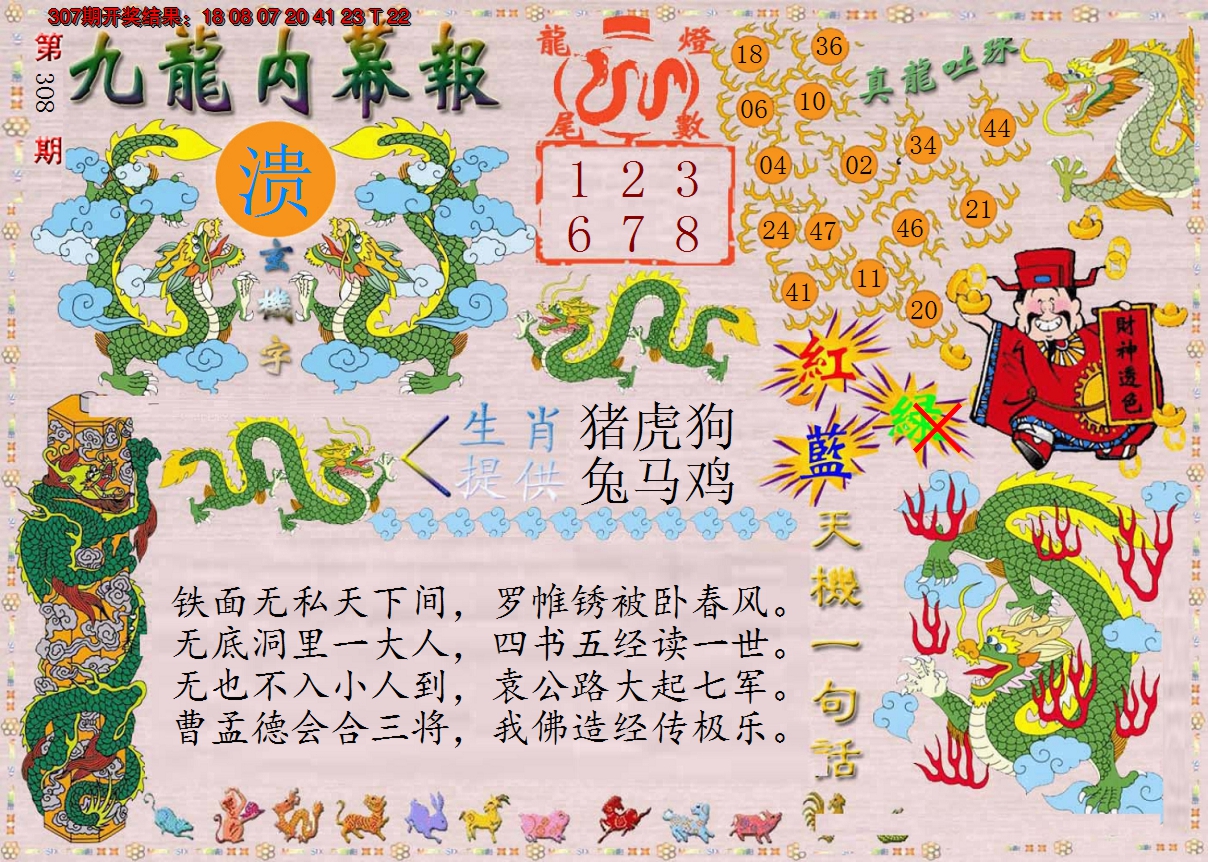 307期开奖结果：18 08 07 20 41 23 T 22
第308期
九龍内幕報
溃
玄機字
龍燈
尾數
1 2 3
6 7 8
真龍吐珠
18 36
06 10
34 44
04 02
24 47 46 21
41 11
20
財神透色
紅
綠
藍
生肖 猪虎狗
提供 兔马鸡
天機一句话
铁面无私天下间，罗帷锈被卧春风。
无底洞里一大人，四书五经读一世。
无也不入小人到，袁公路大起七军。
曹孟德会合三将，我佛造经传极乐。